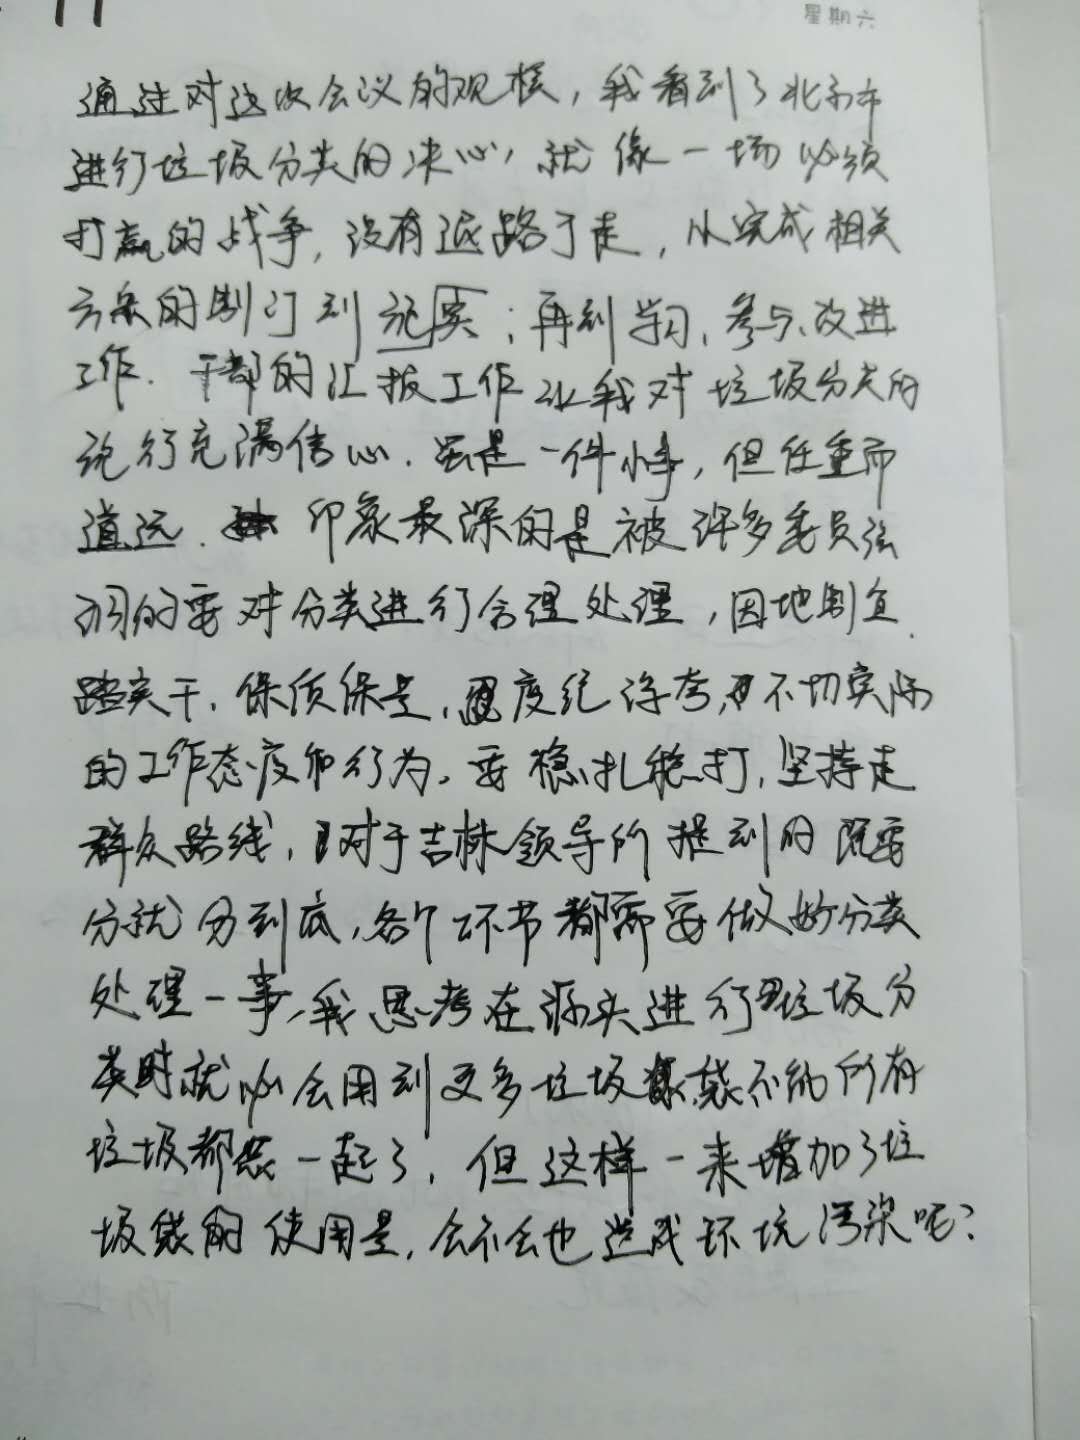 星期六
通过对这次会议的观摩，我看到了北京市
进行垃圾分类的决心，就像一场必须
打赢的战争，没有退路可走，从完成相关
方案的制订到记实；再到学习、参与、改进
工作．干部的汇报工作让我对垃圾分类的
施行充满信心．虽是一件小事，但任重而
道远．印象最深的是被许多委员强
调的要对分类进行合理处理，因地制宜．
踏实干，保质保量，不切实际
的工作态度和行为。要稳扎稳打，坚持走
群众路线，对于吉林领导所提到的既要
分就分到底，各个环节都需要做好分类
处理一事，我思考在源头进行垃圾分
类时就必会用到更多垃圾袋不能所有
垃圾都装一起了，但这样一来增加了垃
圾袋的使用量，会不会也造成环境污染呢？